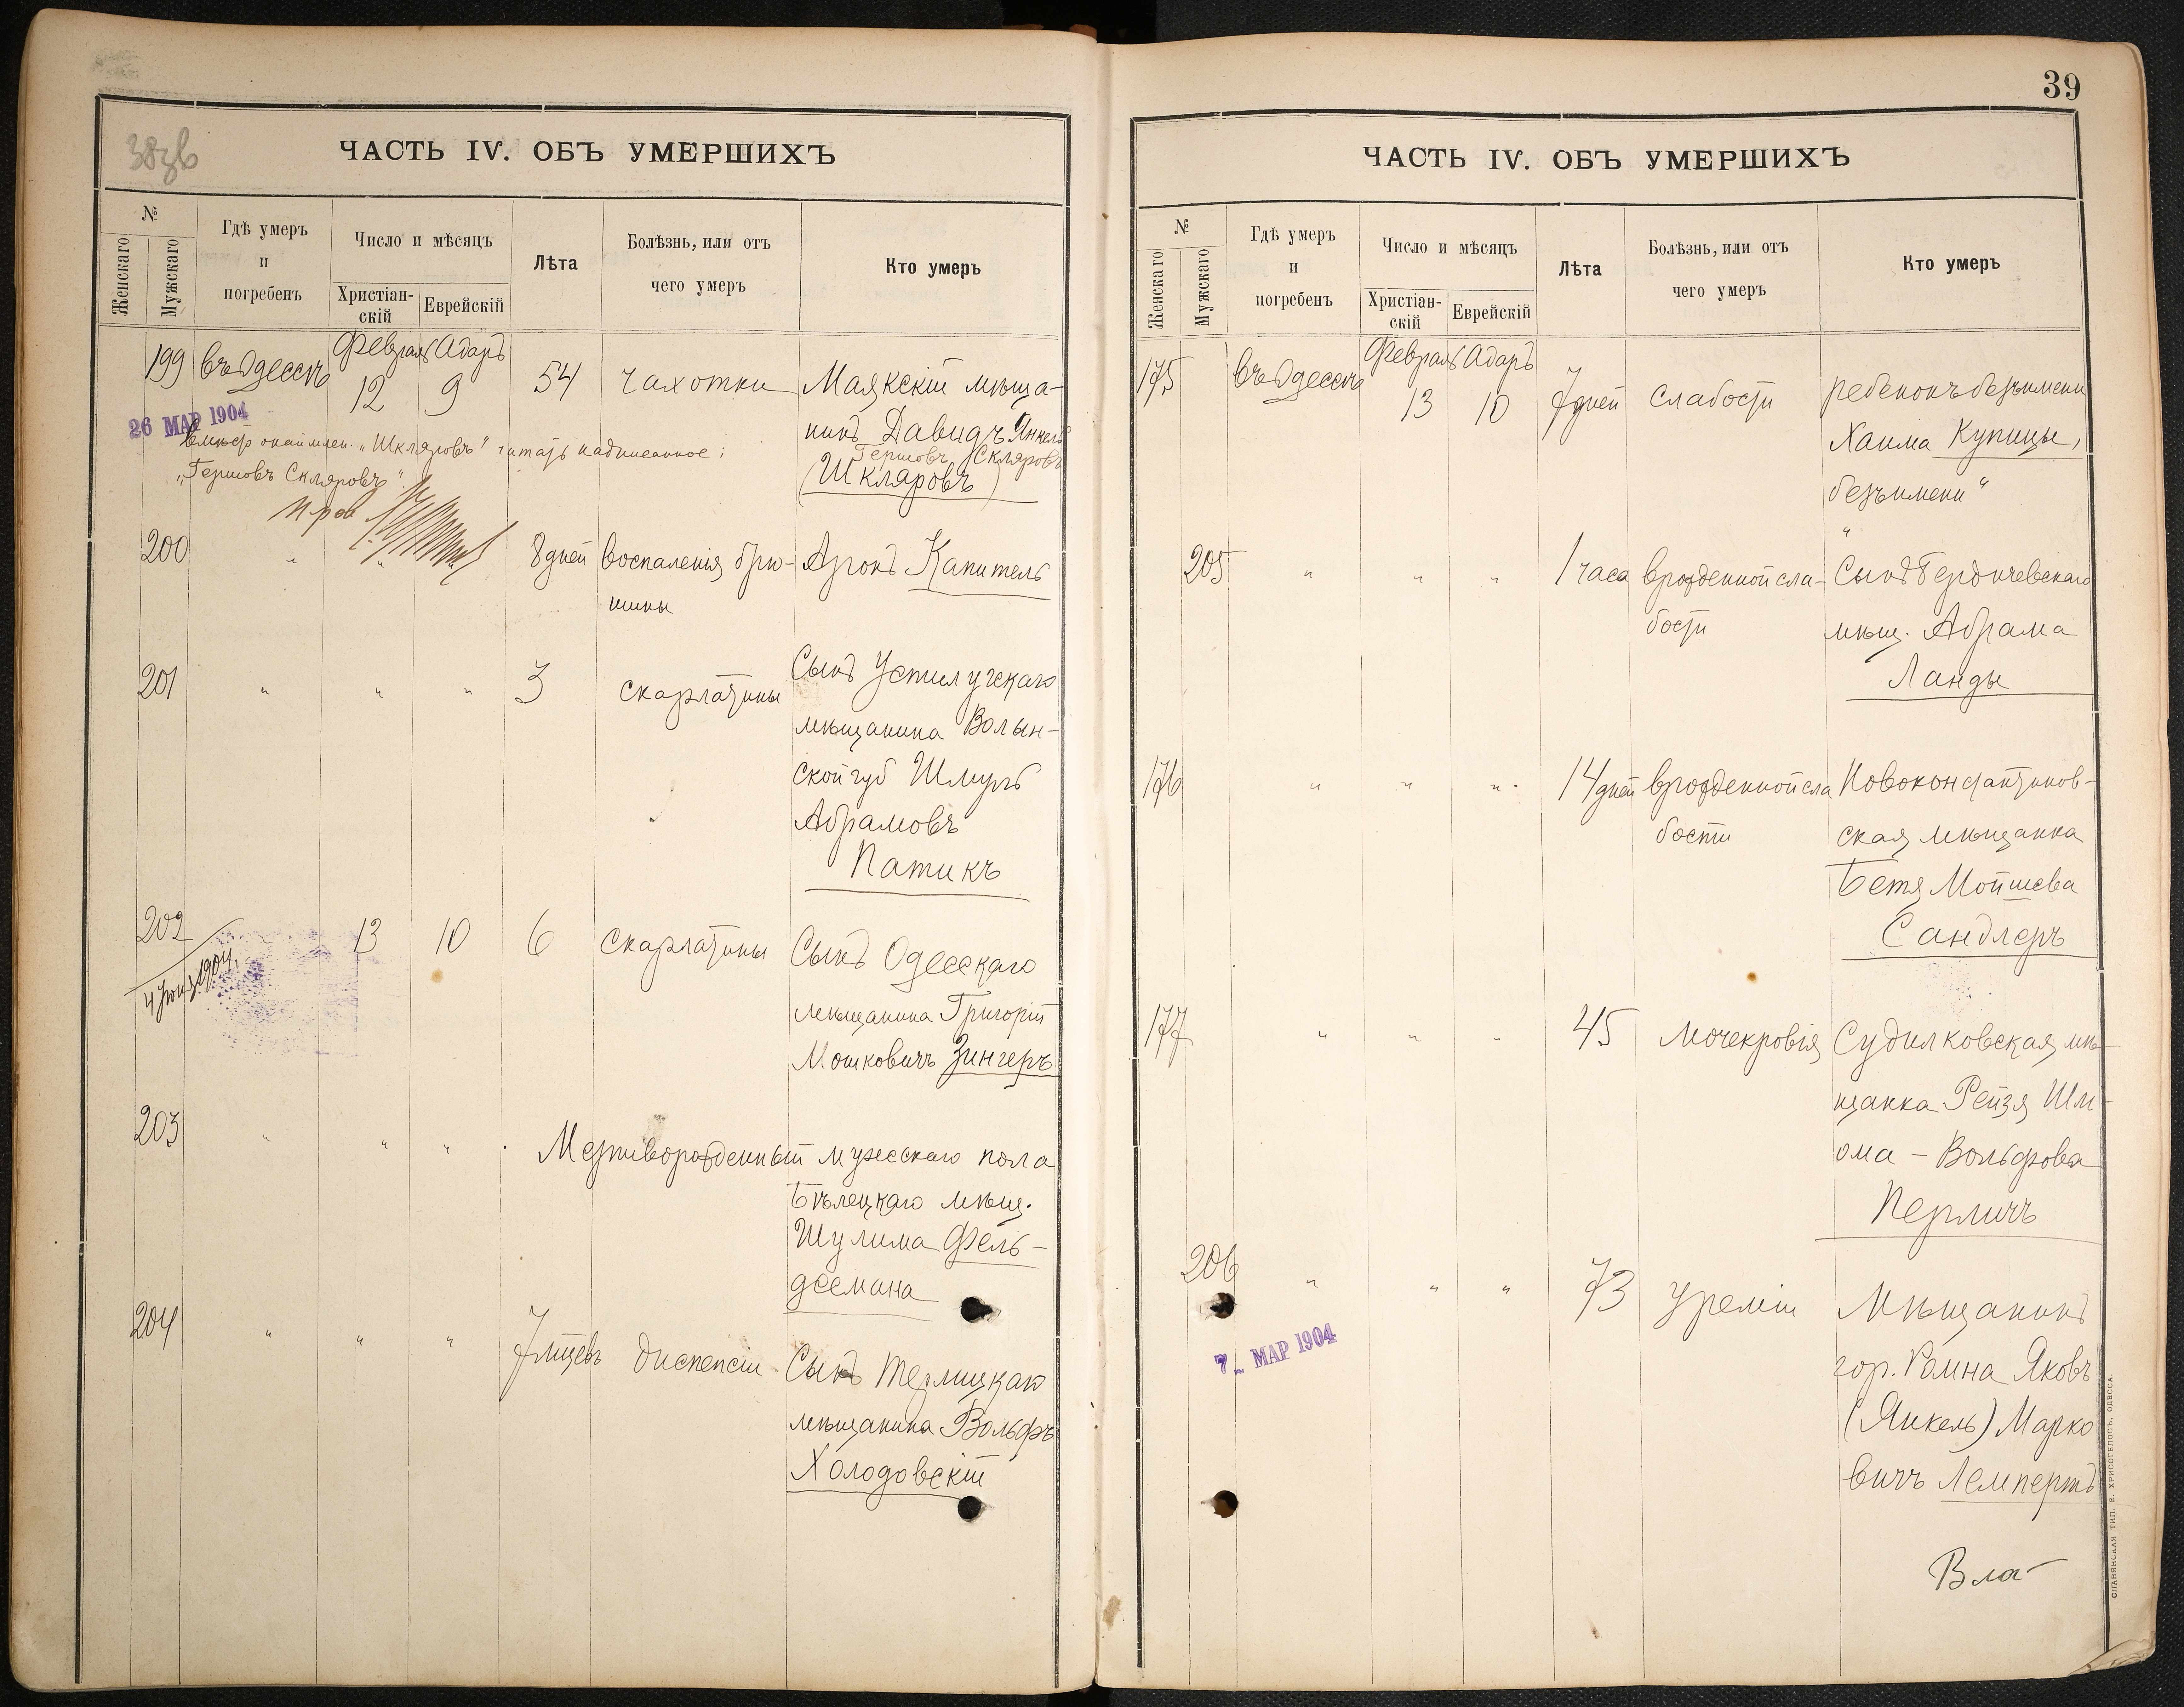 38зв
ЧАСТЬ IV. ОБЪ УМЕРШИХЪ
№
Женскаго
Мужскаго
Гдѣ умеръ
и
погребенъ
Число и мѣсяцъ
Христіан-
скій
Еврейскій
Лѣта
Болѣзнь, или отъ
чего умеръ
Кто умеръ
199 въ Одессѣ Февраль 12 Адаръ 9 54 чахотки Маякскій мѣща-
нинъ Давидъ Янкель
Гершовъ Скляровъ
(Шкляровъ)
26 МАР 1904
вмѣсто окаймлен. „Шкляровъ" читать надписанное:
„Гершовъ Скляровъ"
200 " " 8 дней воспаленія брю- Аронъ Капитель
шины
201 " " " 3 скарлатины Сынъ Устилугскаго
мѣщанина Волын-
ской губ. Шмуль
Абрамовъ
Патикъ
202 13 10 6 скарлатины Сынъ Одесскаго
мѣщанина Григорій
Мошковичъ Зингеръ
4 Іюня 1904.
203 " " " Мертворожденный мужескаго пола
Бѣлецкаго мѣщ.
Шулима Фель-
дсемана
204 " " " 7 мцевъ диспепсіи Сынъ Терлицкаго
мѣщанина Вольфъ
Холодовскій
39
ЧАСТЬ IV. ОБЪ УМЕРШИХЪ
№
Женскаго
Мужскаго
Гдѣ умеръ
и
погребенъ
Число и мѣсяцъ
Христіан-
скій
Еврейскій
Лѣта
Болѣзнь, или отъ
чего умеръ
Кто умеръ
175 въ Одессѣ Февраль 13 Адаръ 10 7 дней слабости ребенокъ безъимени
Хаима Купицы,
безъимени"
205 " " " 1 часа врожденной сла- Сынъ Бердичевскаго
бости мѣщ. Абрама
Ланды
176 " " " 14 дней врожденной сла Новоконстантинов-
бости ская мѣщанка
Бетя Мойшева
Сандлеръ
177 " " " 45 мочекровія Судилковская мѣ-
щанка Рейзя Шлі-
ома-Вольфова
Перличъ
206 " " " 73 уреміи Мѣщанинъ
гор. Ромна Яковъ
(Янкель) Марко
вичъ Лемпертъ
7_ МАР 1904
Вла-
СЛАВЯНСКАЯ ТИП. Е. ХРИСОГЕЛОСЪ, ОДЕССА.